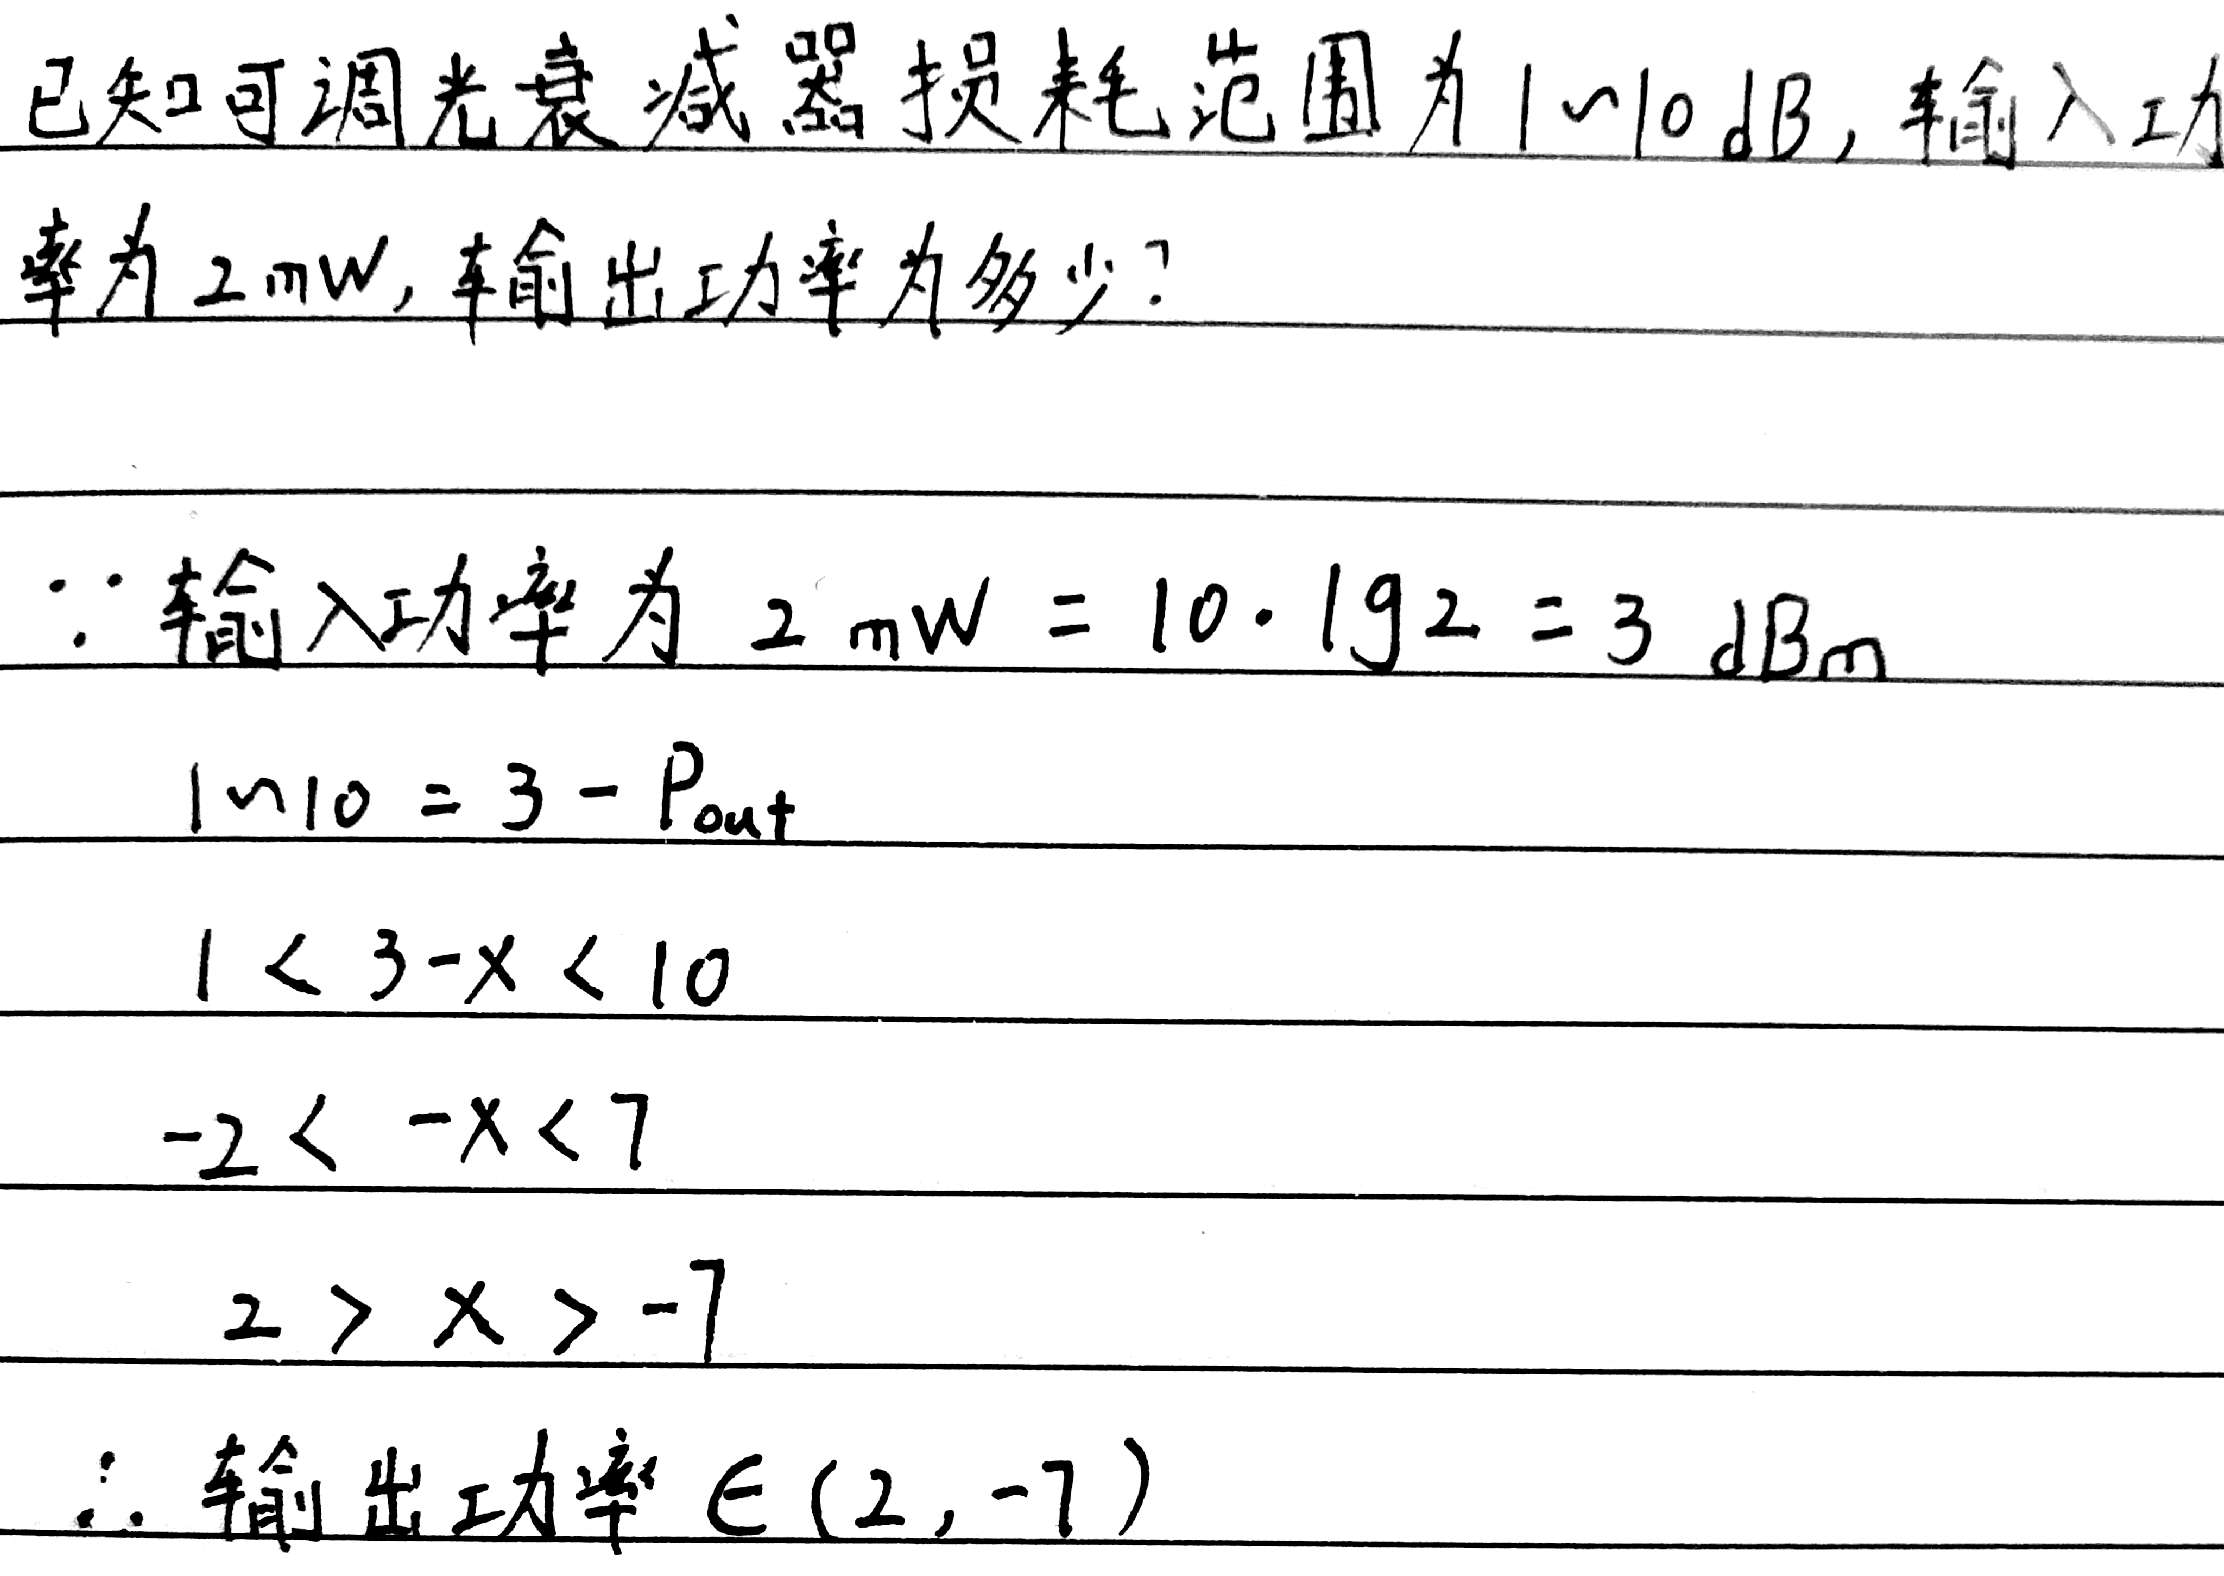 已知可调光衰减器损耗范围为1~10dB,输入功
率为2mW,输出功率为多少?
∵输入功率为 2 mW = 10·lg2 = 3 dBm
1~10 = 3 - Pout
1 < 3-x < 10
-2 < -x < 7
2 > x > -7
∴ 输出功率 ∈ (2, -7)